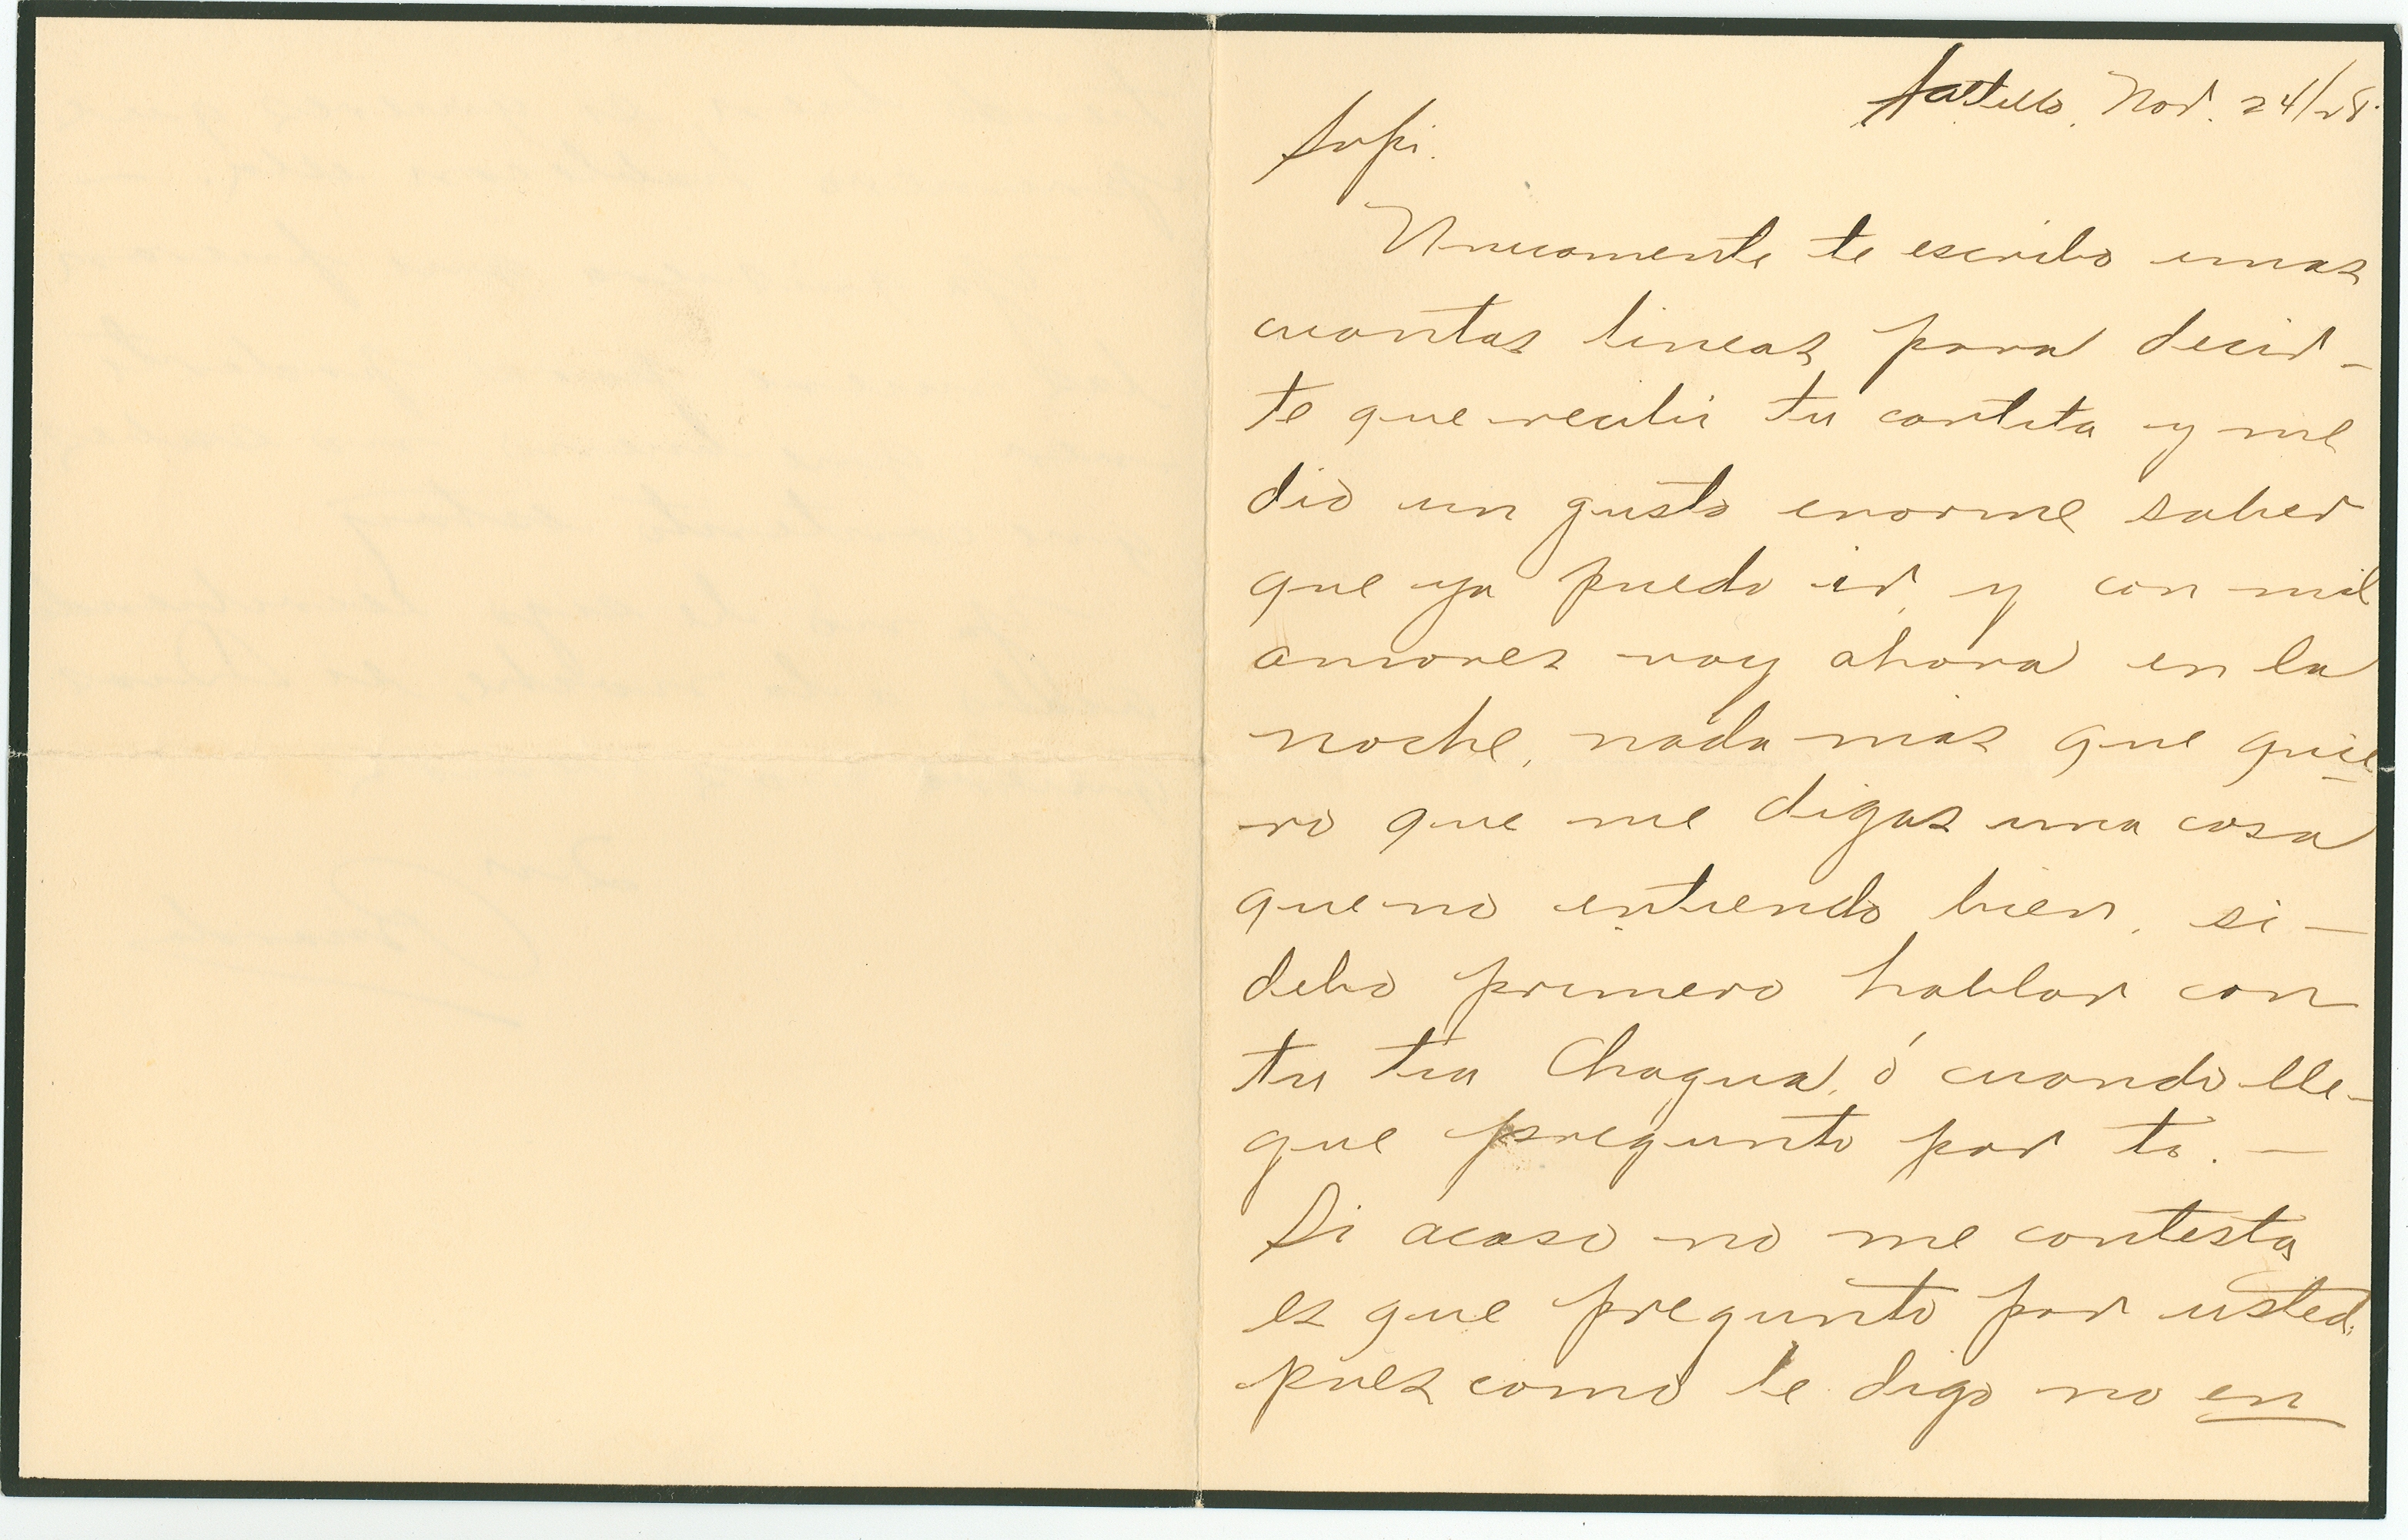 Saltillo, Nov. 24/28.
Sofi.
Unicamente te escribo unas
cuantas lineas para decir-
te que recibi tu cartita y me
dió un gusto enorme saber
que ya puedo ir, y con mil
amores voy ahora en la
noche, nada mas que quie
ro que me digas una cosa
que no entiendo bien, si —
debo primero hablar con
tu tia Chagua, ó cuando lle-
gue pregunto por ti. —
Si acaso no me contesta,
es que pregunto por usted,
pues como le digo no en